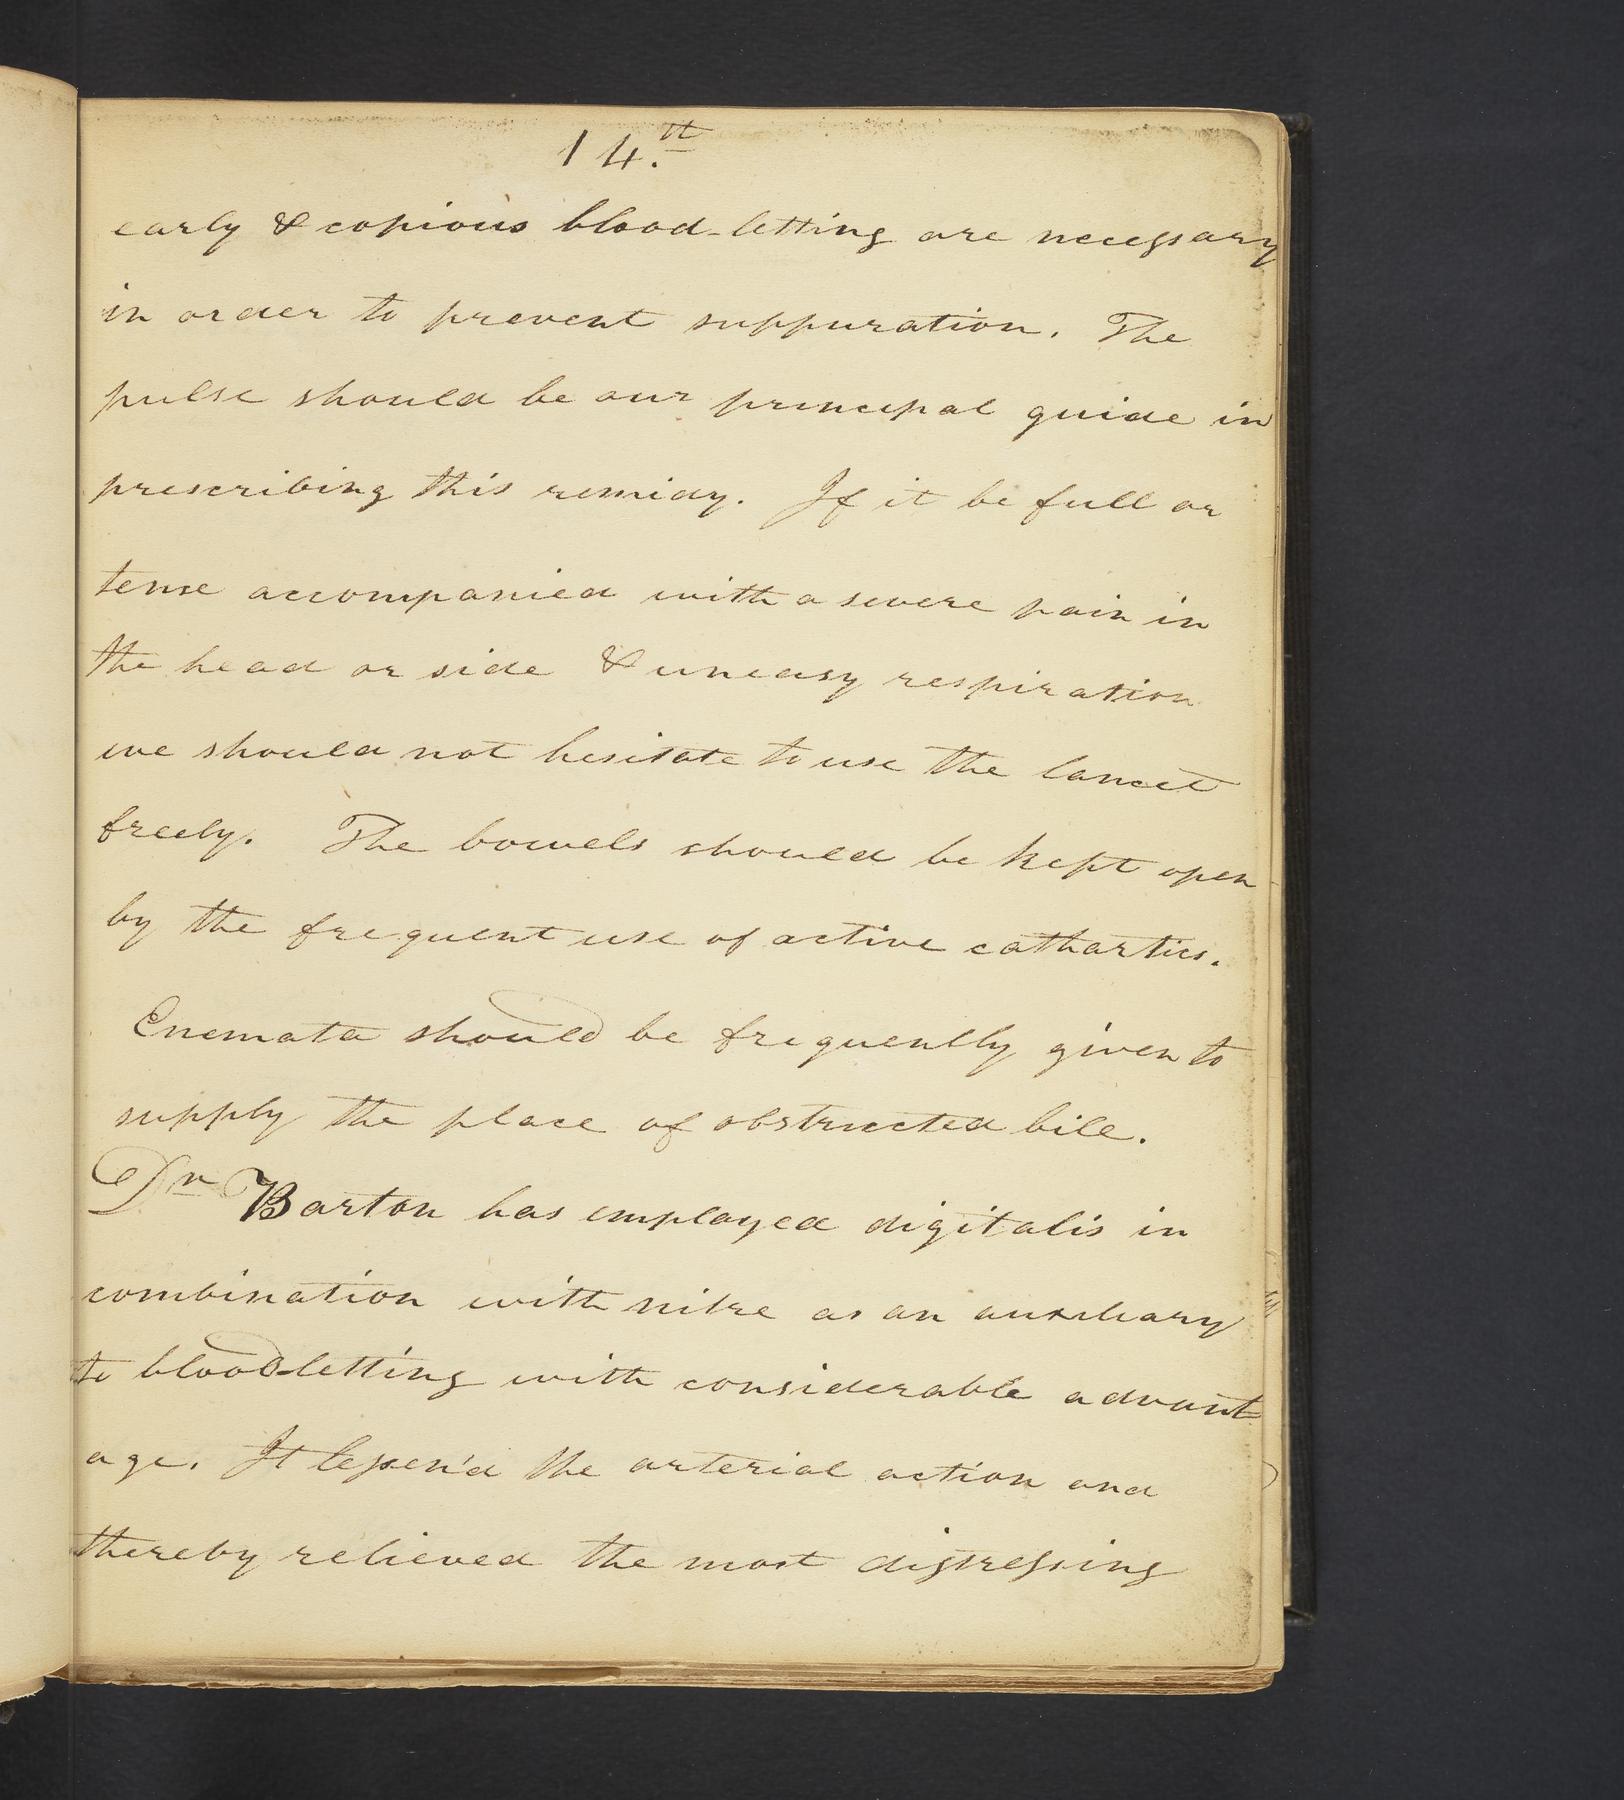 14.th
early & copious blood-letting are necessary
in order to prevent suppuration. The
pulse should be our principal guide in
prescribing this remidy. If it be full or
tense accompanied with a severe pain in
the head or side & uneasy respiration
we should not hesitate to use the lancet
freely. The bowels should be kept open
by the frequent use of active cathartics.
Enemata should be frequently given to
supply the place of obstructed bile.
Dr Barton has employed digitalis in
combination with nitre as an auxiliary
to bloodletting with considerable advant
age. It lessen'd the arterial action and
thereby relieved the most distressing